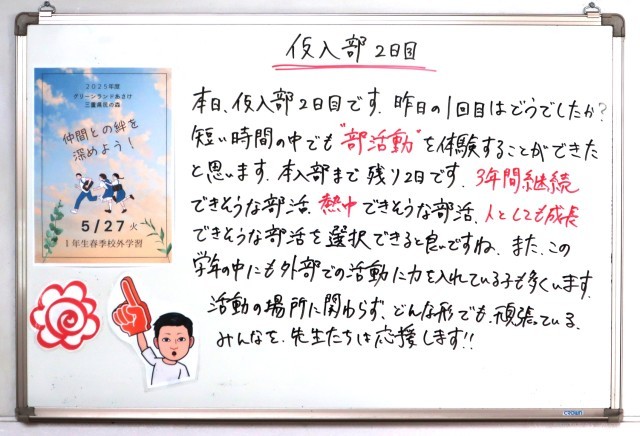 仮入部 2日目
2025年度
グリーンランドあさけ
三重県民の森
仲間との絆を
深めよう!
5/27 火
1年生春季校外学習
本日、仮入部2日目です。昨日の1回目はどうでしたか?
短い時間の中でも"部活動"を体験することができた
と思います。本入部まで残り2日です。3年間継続
できそうな部活、熱中できそうな部活、人としても成長
できそうな部活を選択できると良いですね。また、この
学年の中にも外部での活動に力を入れている子も多くいます。
活動の場所に関わらず、どんな形でも、頑張っている、
みんなを、先生たちは応援します!!
crown